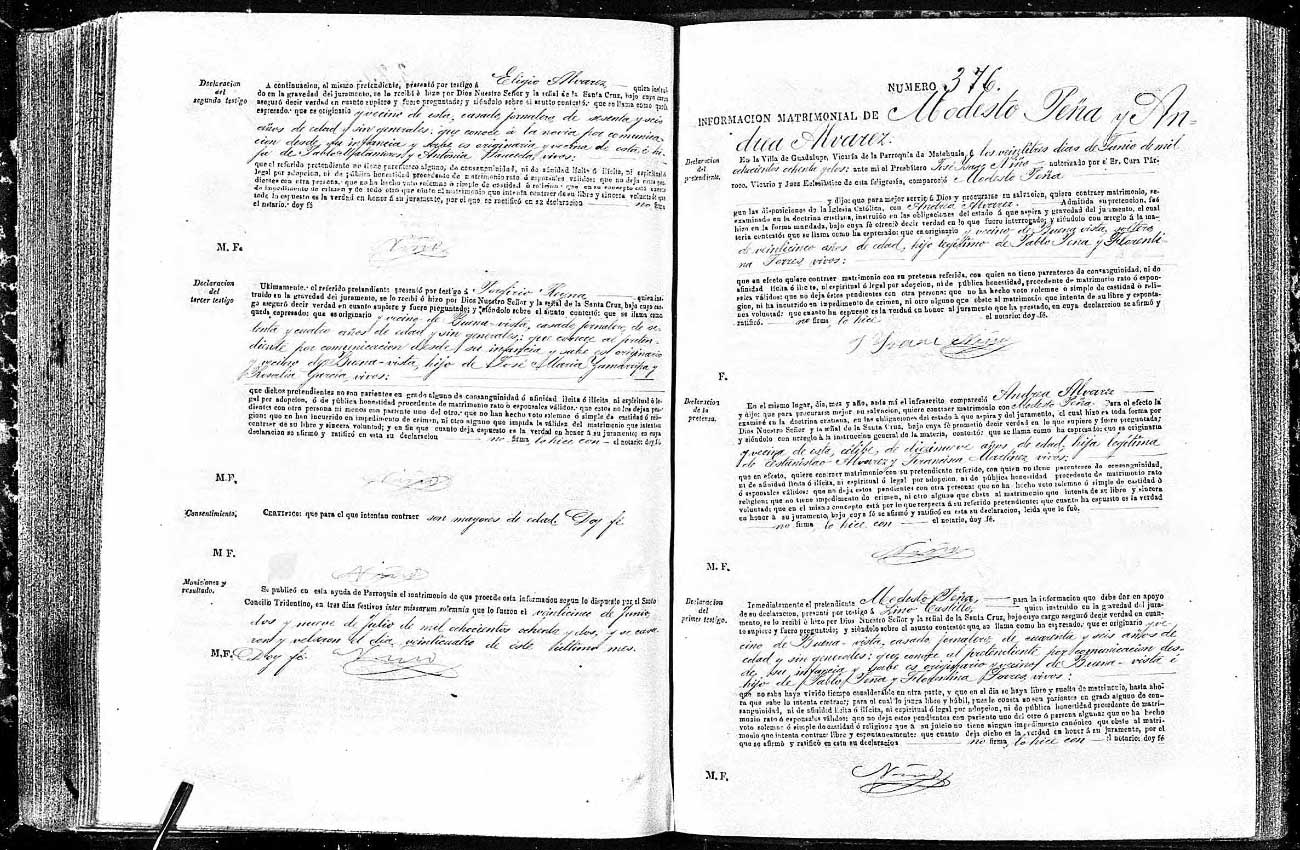 Declaracion
del
segundo testigo
A continuacion, el mismo pretendiente, presentó por testigo á Eligio Alvarez, quien instrui-
do en la gravedad del juramento, se lo recibí é hizo por Dios Nuestro Señor y la señal de la Santa Cruz, bajo cuyo cargo
aseguró decir verdad en cuanto supiere y fuere preguntado; y siéndolo sobre el asunto contestó: que se llama como queda
expresado: que es originario y vecino de esta, casado, jornalero de sesenta y seis
años de edad y sin generales; que conoce á la novia por comunica-
cion desde su infancia y sabe es originaria y vecina de esta é hi-
ja de Pablo y Antonia vivos:
que el referido pretendiente no tiene parentesco alguno, de consanguinidad, ni de afinidad lícita ó ilícita, ni espiritual ó
legal por adopcion, ni de pública honestidad procedente de matrimonio rato ó esponsales válidos: que no deja estos pen-
dientes con otra persona, que no ha hecho voto solemne ó simple de castidad ó religion:
de impedimento de crimen y de todo otro que obste al matrimonio que intenta contraer de su libre y sincera voluntad: que
todo lo expuesto es la verdad en honor á su juramento, por el que se ratificó en su declaracion no firma
el notario: doy fé
M. F.
Niño
Declaracion
del
tercer testigo
Ultimamente: el referido pretendiente presentó por testigo á Porfirio Reyna quien ins-
truido en la gravedad del juramento, se lo recibí ó hizo por Dios Nuestro Señor y la señal de la Santa Cruz, bajo cuyo car-
go aseguró decir verdad en cuanto supiere y fuere preguntado; y siéndolo sobre el asunto contestó: que se llama como
queda expresado: que es originario y vecino de Buena-vista, casado, jornalero, de se-
tenta y cuatro años de edad y sin generales; que conoce al preten-
diente por comunicacion desde su infancia y sabe es originario
y vecino de Buena-vista, hijo de José Maria y
Rosalia Garcia, vivos:
que dichos pretendientes no son parientes en grado alguno de consanguinidad ó afinidad lícita ó ilícita, ni espiritual ó le-
gal por adopcion, ó de pública honestidad procedente de matrimonio rato ó esponsales válidos: que estos no los dejan pen-
dientes con otra persona ni menos con pariente uno del otro: que no han hecho voto solemne ó simple de castidad ó reli-
gion; que no han incurrido en impedimento de crimen, ni otro alguno que impida la válidez del matrimonio que intentan
contraer de su libre y sincera voluntad; y en fin que cuanto deja expuesto es la verdad en honor á su juramento; en cuya
declaracion se afirmó y ratificó en esta su declaracion no firma lo hice con el notario: doy fé.
M.F.
Niño
Consentimiento.
CERTIFICO: que para el que intentan contraer son mayores de edad. Doy fé.
M F.
Niño
Municiones y
resultado.
Se publicó en esta ayuda de Parroquia el matrimonio de que procede esta informacion segun lo dispuesto por el Santo
Concilio Tridentino, en tres dias festivos inter missarum solemnia que lo fueron el veinticinco de Junio,
dos y nueve de Julio de mil ochocientos ochenta y dos, y se casa-
ron y velaron el dia veinticuatro de este ultimo mes.
M.F. Doy fé. Niño
NUMERO 376.
INFORMACION MATRIMONIAL DE Modesto Peña y An-
drea Alvarez.
Declaracion
del
pretendiente.
En la Villa de Guadalupe, Vicaria de la Parroquia de Matehuala, á los veintitres dias de Junio de mil
ochocientos ochenta y dos: ante mí el Presbítero José Niño notoriado por el Sr. Cura Pár-
roco, Vicario y Juez Eclesiástico de esta feligresía, compareció Modesto Peña
y dijo: que para mejor servir á Dios y procurarse su salvacion, quiere contraer matrimonio, se-
gun las disposiciones de la Iglesia Católica, con Andrea Alvarez. Admitida su pretension, fué
examinado en la doctrina cristiana, instruido en las obligaciones del estado á que aspira y gravedad del juramento, el cual
hizo en la forma mandada, bajo cuya fé ofreció decir verdad en lo que fuere interrogado; y siéndolo con arreglo á la ma-
teria contestó: que se llama como ha expresado: que es originario y vecino de Buena vista, soltero
de veinticinco años de edad, hijo legítimo de Pablo Peña y Florenti-
na Torres vivos:
que en efecto quiere contraer matrimonio con su pretensa referida, con quien no tiene parentesco de consanguinidad, ni de
afinidad lícita ó ilícita, ni espiritual ó legal por adopcion, ni de pública honestidad, procedente de matrimonio rato ó espon-
sales válidos: que no deja éstos pendientes con otra persona: que no ha hecho voto solemne ó simple de castidad ó reli-
gion, ni ha incurrido en impedimento de crimen, ni otro alguno que obste al matrimonio que intenta de su libre y espontá-
nea voluntad: que cuanto ha expuesto es la verdad en honor al juramento que ha prestado, en cuya declaracion se afirmó y
ratificó. no firma lo hice el notario: doy fé.
Niño
F.
Declaracion
de la
pretensa.
En el mismo lugar, dia, mes y año, ante mí el infrascrito compareció Andrea Alvarez
y dijo: que para procurarse mejor su salvacion, quiere contraer matrimonio con Modesto Peña. Para el efecto la
examiné en la doctrina cristiana, en las obligaciones del estado á que aspira y del juramento, el cual hizo en toda forma por
Dios Nuestro Señor y la señal de la Santa Cruz, bajo cuya fé prometió decir verdad en lo que supiere y fuere preguntada;
y siéndolo con arreglo á la instruccion general de la materia, contestó: que se llama como ha expresado: que es originaria
y vecina de esta, célibe de diezinueve años de edad, hija legítima
de Estanislao Alvarez y Francisca Martinez vivos:
que en efecto, quiere contraer matrimonio con su pretendiente referido, con quien no tiene parentesco de consanguinidad,
ni de afinidad lícita ó ilícita, ni espiritual ó legal por adopcion, ni de pública honestidad procedente de matrimonio rato
ó esponsales válidos: que no deja estos pendientes con otra persona: que no ha hecho voto solemne ó simple de castidad ó
religion; que no tiene impedimento de crimen, ni otro alguno que obste al matrimonio que intenta de su libre y sincera
voluntad: que en el mismo concepto está por lo que respecta á su referido pretendiente: que cuanto ha expuesto es la verdad
en honor á su juramento, bajo cuya fé se afirmó y ratificó en esta su declaracion, leida que le fué.
no firma, lo hice con el notario, doy fé.
Niño
M. F.
Declaracion
del
primer testigo.
Inmediatamente el pretendiente Modesto Peña, para la informacion que debe dar en apoyo
de su declaracion, presentó por testigo á Lino Castillo, quien instruido en la gravedad del jura-
mento, se lo recibí é hizo por Dios Nuestro Señor y la señal de la Santa Cruz, bajo cuyo cargo aseguró decir verdad en cuan-
to supiere y fuere preguntado; y siéndolo sobre el asunto contestó: que se llama como ha expresado: que es originario y ve-
cino de Buena-vista, casado, jornalero, de cuarenta y seis años de
edad y sin generales: que conoce al pretendiente por comunicacion des-
de su infancia y sabe es originario y vecino de Buena-vista é
hijo de Pablo Peña y Florentina Torres, vivos:
que no sabe haya vivido tiempo considerable en otra parte, y que en el dia se haya libre y suelto de matrimonio, hasta aho-
ra que sabe lo intenta contraer; para el cual lo juzga libre y hábil, pues le consta no son parientes en grado alguno de con-
sanguinidad, ni de afinidad lícita ó ilícita, ni espiritual ó legal por adopcion, ni de pública honestidad procedente de matri-
monio rato ó esponsales válidos: que no deja estos pendientes con pariente uno del otro ó persona alguna: que no ha hecho
voto solemne ó simple de castidad ó religion: que á su juicio no tiene ningun impedimento canónico que obste al matri-
monio que intenta contraer libre y espontaneamente: que cuanto deja dicho es la verdad en honor á su juramento, por el
que se afirmó y ratificó en esta su declaracion no firma, lo hice con el notario: doy fé
M. F.
Niño